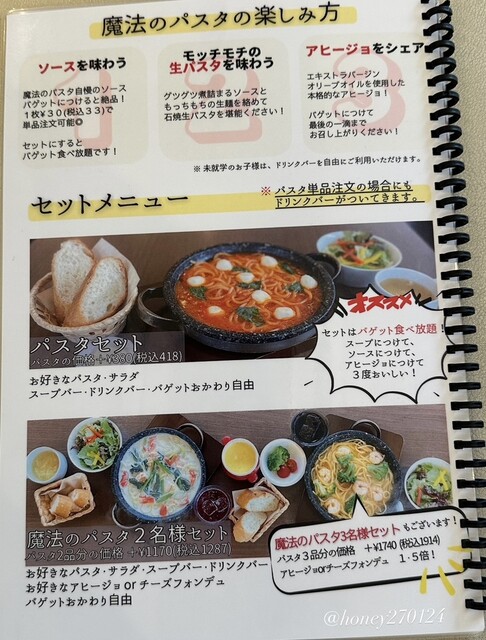 魔法のパスタの楽しみ方
1
ソースを味わう
魔法のパスタ自慢のソース
バゲットにつけると絶品!
1枚¥30(税込33)で
単品注文可能◎
セットにすると
バゲット食べ放題です!
2
モッチモチの
生パスタを味わう
グツグツ煮詰まるソースと
もっちもちの生麺を絡めて
石焼生パスタを堪能ください!
3
アヒージョをシェア
エキストラバージン
オリーブオイルを使用した
本格的なアヒージョ!
バゲットにつけて
最後の一滴まで
お召し上がりください!
※ 未就学のお子様は、ドリンクバーを自由にご利用いただけます。
セットメニュー
※ パスタ単品注文の場合にも
ドリンクバーがついてきます。
パスタセット
パスタの価格+¥380(税込418)
お好きなパスタ・サラダ
スープバー・ドリンクバー・バゲットおかわり自由
オススメ
セットはバゲット食べ放題!
スープにつけて、
ソースにつけて、
アヒージョにつけて
3度おいしい!
魔法のパスタ2名様セット
パスタ2品分の価格 +¥1170(税込1287)
お好きなパスタ・サラダ・スープバー・ドリンクバー
お好きなアヒージョ or チーズフォンデュ
バゲットおかわり自由
魔法のパスタ3名様セットもございます!
パスタ3品分の価格 +¥1740(税込1914)
アヒージョorチーズフォンデュ 1.5倍!
@honey270124